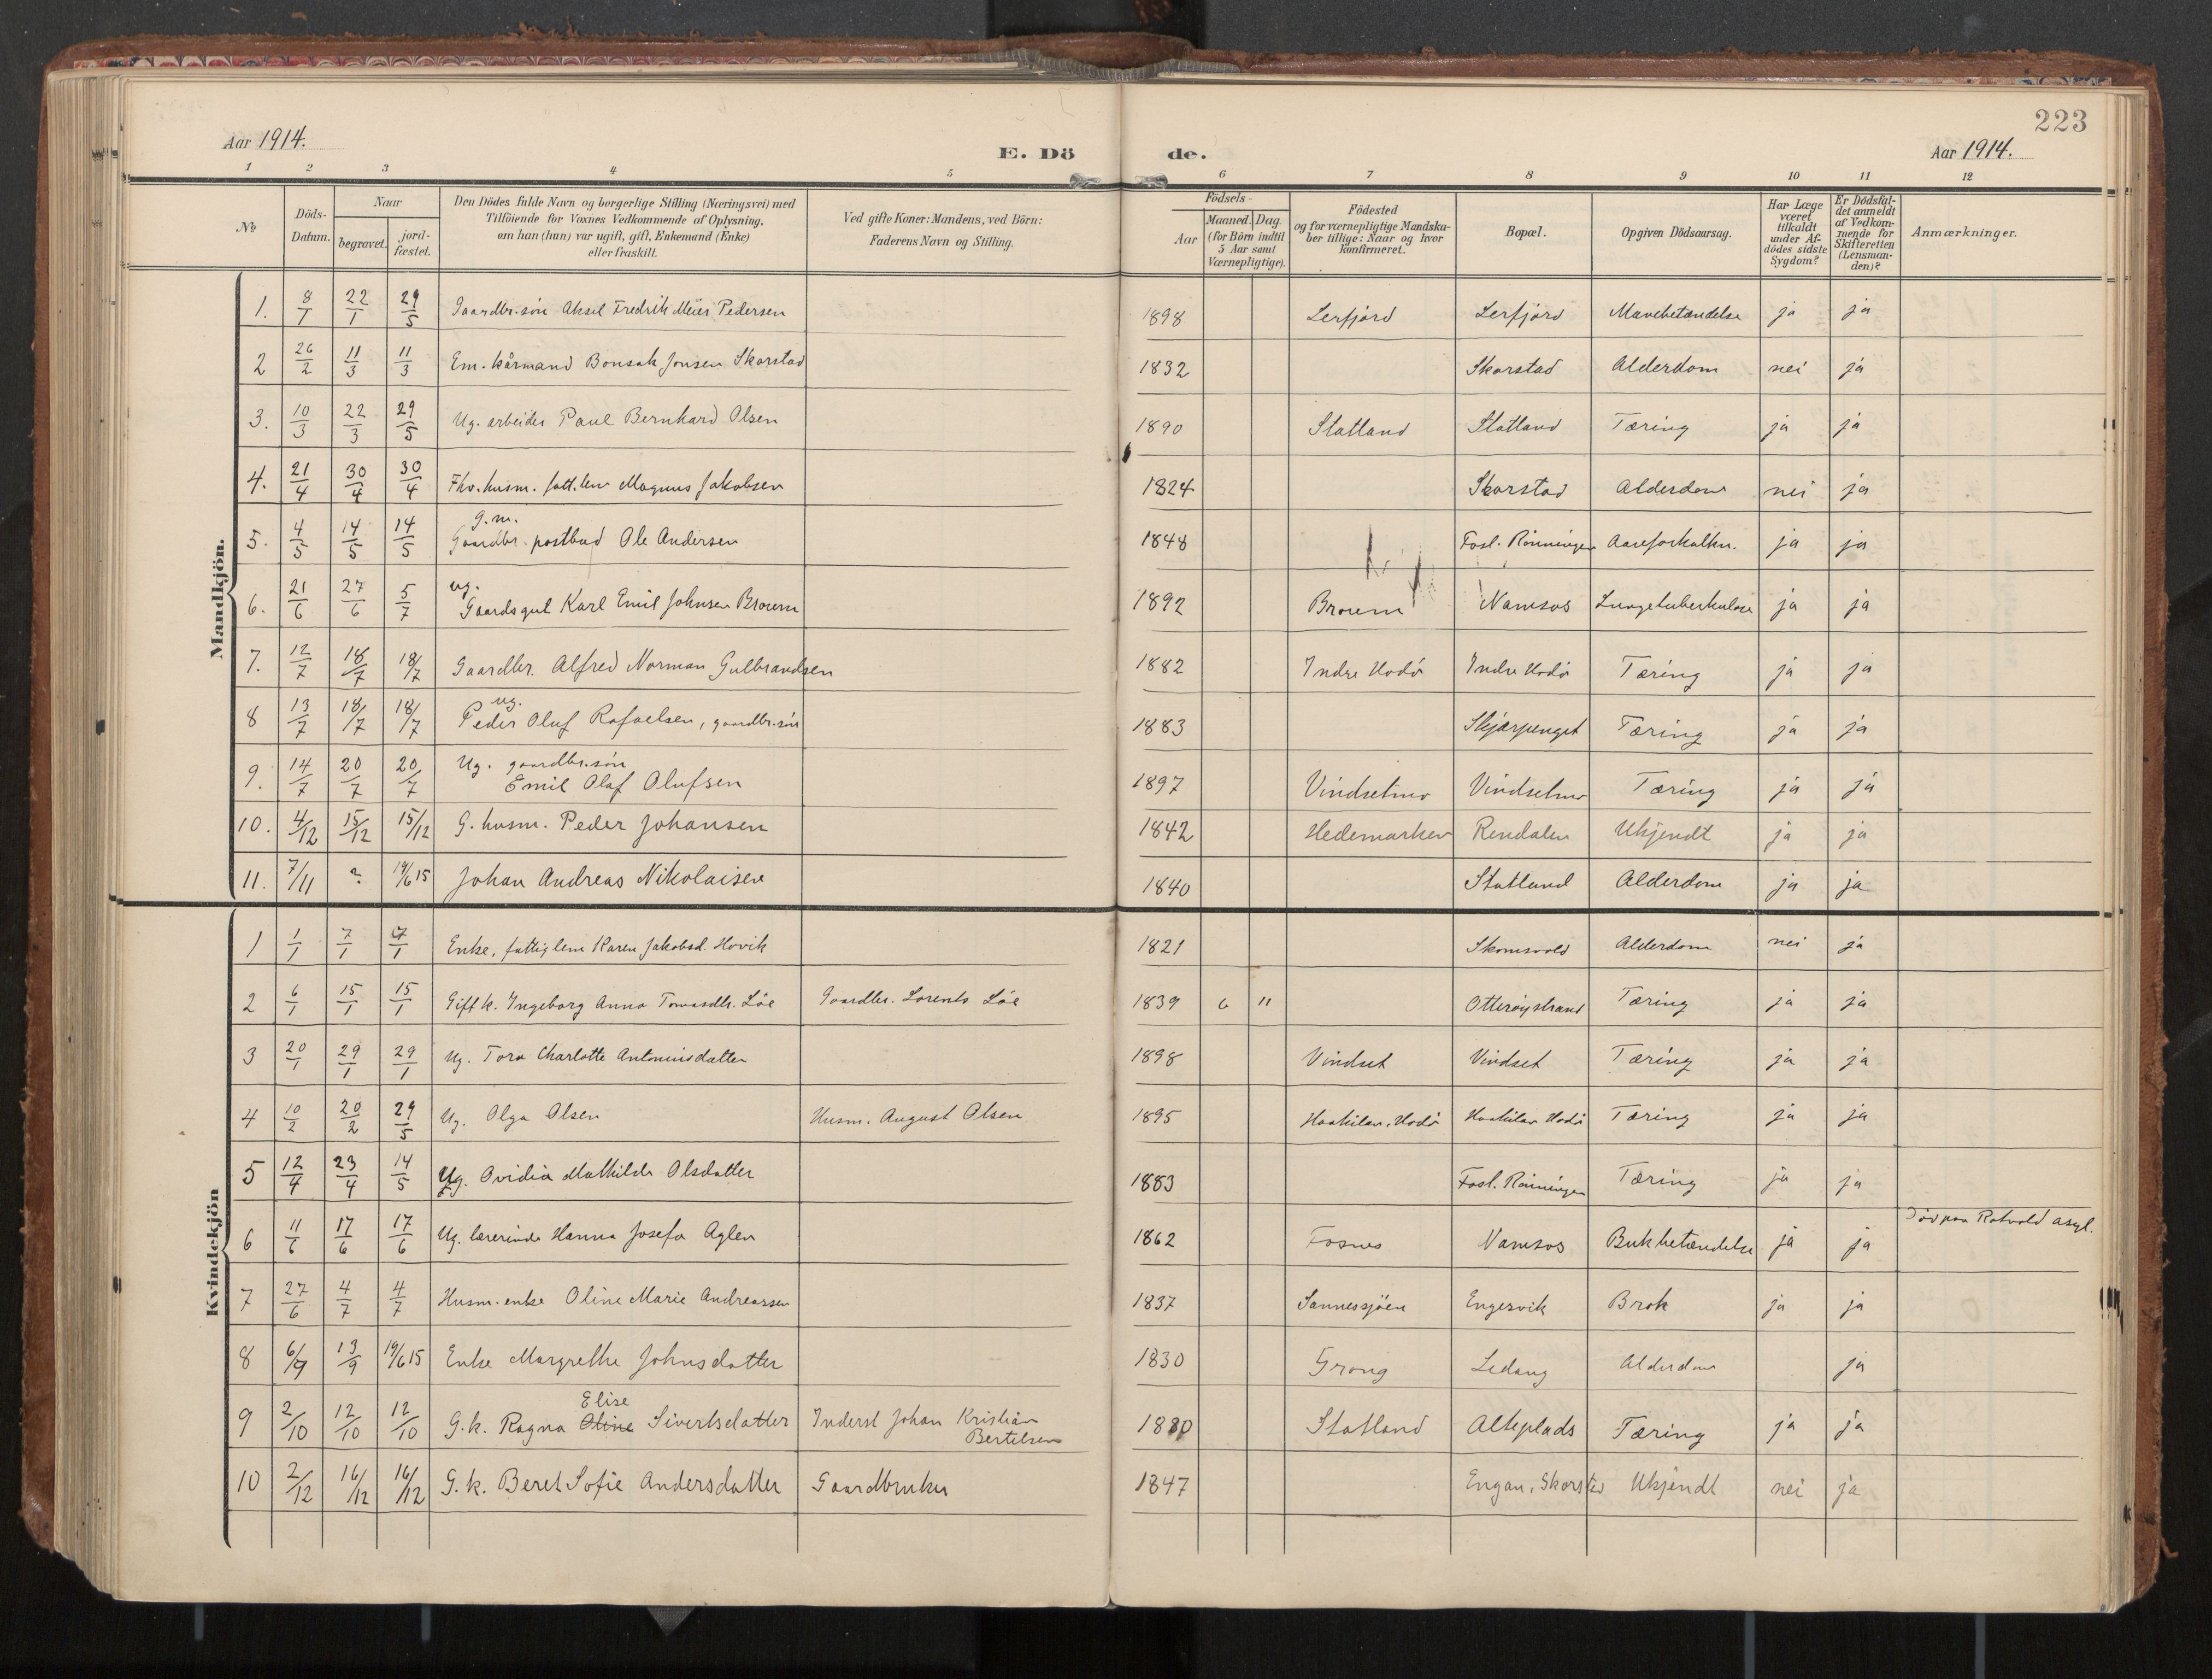 223
Aar 1914.
E. Dö de.
Aar 1914.
1 2 3 4 5 6 7 8 9 10 11 12
No
Döds-Datum.
Naar
begravet.
jord-fæstet.
Den Dödes fulde Navn og borgerlige Stilling (Næringsvei) med
Tilföiende for Voxnes Vedkommende af Oplysning,
om han (hun) var ugift, gift, Enkemand (Enke)
eller fraskilt.
Ved gifte Koner: Mandens, ved Börn:
Faderens Navn og Stilling.
Födsels-
Aar
Maaned. Dag.
(for Börn indtil
5 Aar samt
Værnepligtige).
Födested
og for værnepligtige Mandska-
ber tillige: Naar og hvor
konfirmeret.
Bopæl.
Opgiven Dödsaarsag.
Har Læge
været
tilkaldt
under Af-
dödes sidste
Sygdom?
Er Dödsfal-
det anmeldt
af Vedkom-
mende for
Skifteretten
(Lensman-
den)?
Anmærkninger.
Mandkjön.
1. 8/1 22/1 29/5 Gaardbr.søn Aksel Fredrik Meier Pedersen 1898 Lerfjord Lerfjord Mavebetændelse ja ja
2 26/2 11/3 11/3 Em. kårmand Bonsak Jonsen Skorstad 1832 Skorstad Alderdom nei ja
3. 10/3 22/3 29/5 Ug. arbeider Paul Bernhard Olsen 1890 Statland Statland Tæring ja ja
4. 21/4 30/4 30/4 Fhv. husm. fatt.lem Magnus Jakobsen 1824 Skorstad Alderdom nei ja
5. 4/5 14/5 14/5 g.m. Gaardbr. postbud Ole Andersen 1848 Fosl. Rønningen Aareforkalkn. ja ja
6. 21/6 27/6 5/7 ug. Gaardsgut Karl Emil Johnsen Brørem 1892 Brørem Namsos Lungetuberkulose ja ja
7. 12/7 18/7 18/7 Gaardbr. Alfred Norman Gulbrandsen 1882 Indre Hodø Indre Hodø Tæring ja ja
8 13/7 18/7 18/7 ug. Peder Oluf Rafaelsen, gaardbr.søn 1883 Skjærpenget Tæring ja ja
9. 14/7 20/7 20/7 Ug. gaardbr.søn
Emil Olaf Olufsen 1897 Vindsetmo Vindsetmo Tæring ja ja
10. 4/12 15/12 15/12 G. husm. Peder Johansen 1842 Hedemarken Rendalen Ukjendt ja ja
11. 7/11 ? 19/6 15 Johan Andreas Nikolaisen 1840 Statland Alderdom ja ja
Kvindekjön
1 1/1 7/1 7/1 Enke, fattiglem Karen Jakobsd. Hovik 1821 Skomsvold Alderdom nei ja
2 6/1 15/1 15/1 Gift k. Ingeborg Anna Tomasdtr. Løe Gaardbr. Lorents Løe 1839 6 11 Otterøystrand Tæring ja ja
3 20/1 29/1 29/1 Ug. Tora Charlotte Antoniusdatter 1898 Vindset Vindset Tæring ja ja
4 10/2 20/2 29/5 Ug. Olga Olsen Husm. August Olsen 1895 Haakilen, Hodø Haakilen Hodø Tæring ja ja
5 12/4 23/4 14/5 Ug. Ovidia Mathilde Olsdatter 1883 Fosl. Rønningen Tæring ja ja
6 11/6 17/6 17/6 Ug. lærerinde Hanna Josefa Aglen 1862 Fosnes Namsos Bukbetændelse ja ja Død paa Rotvold asyl.
7 27/6 4/7 4/7 Husm. enke Oline Marie Andreassen 1837 Sannessjøen Engesvik Brok ja ja
8 6/9 13/9 19/6 15 Enke Margrethe Johnsdatter 1830 Grong Ledang Alderdom ja
9 2/10 12/10 12/10 G.k. Ragna Oline Elise Sivertsdatter Inderst Johan Kristian
Bertelsen 1880 Statland Alteplads Tæring ja ja
10 2/12 16/12 16/12 G.k. Beret Sofie Andersdatter Gaardbruker 1847 Engan, Skorstad Ukjendt nei ja